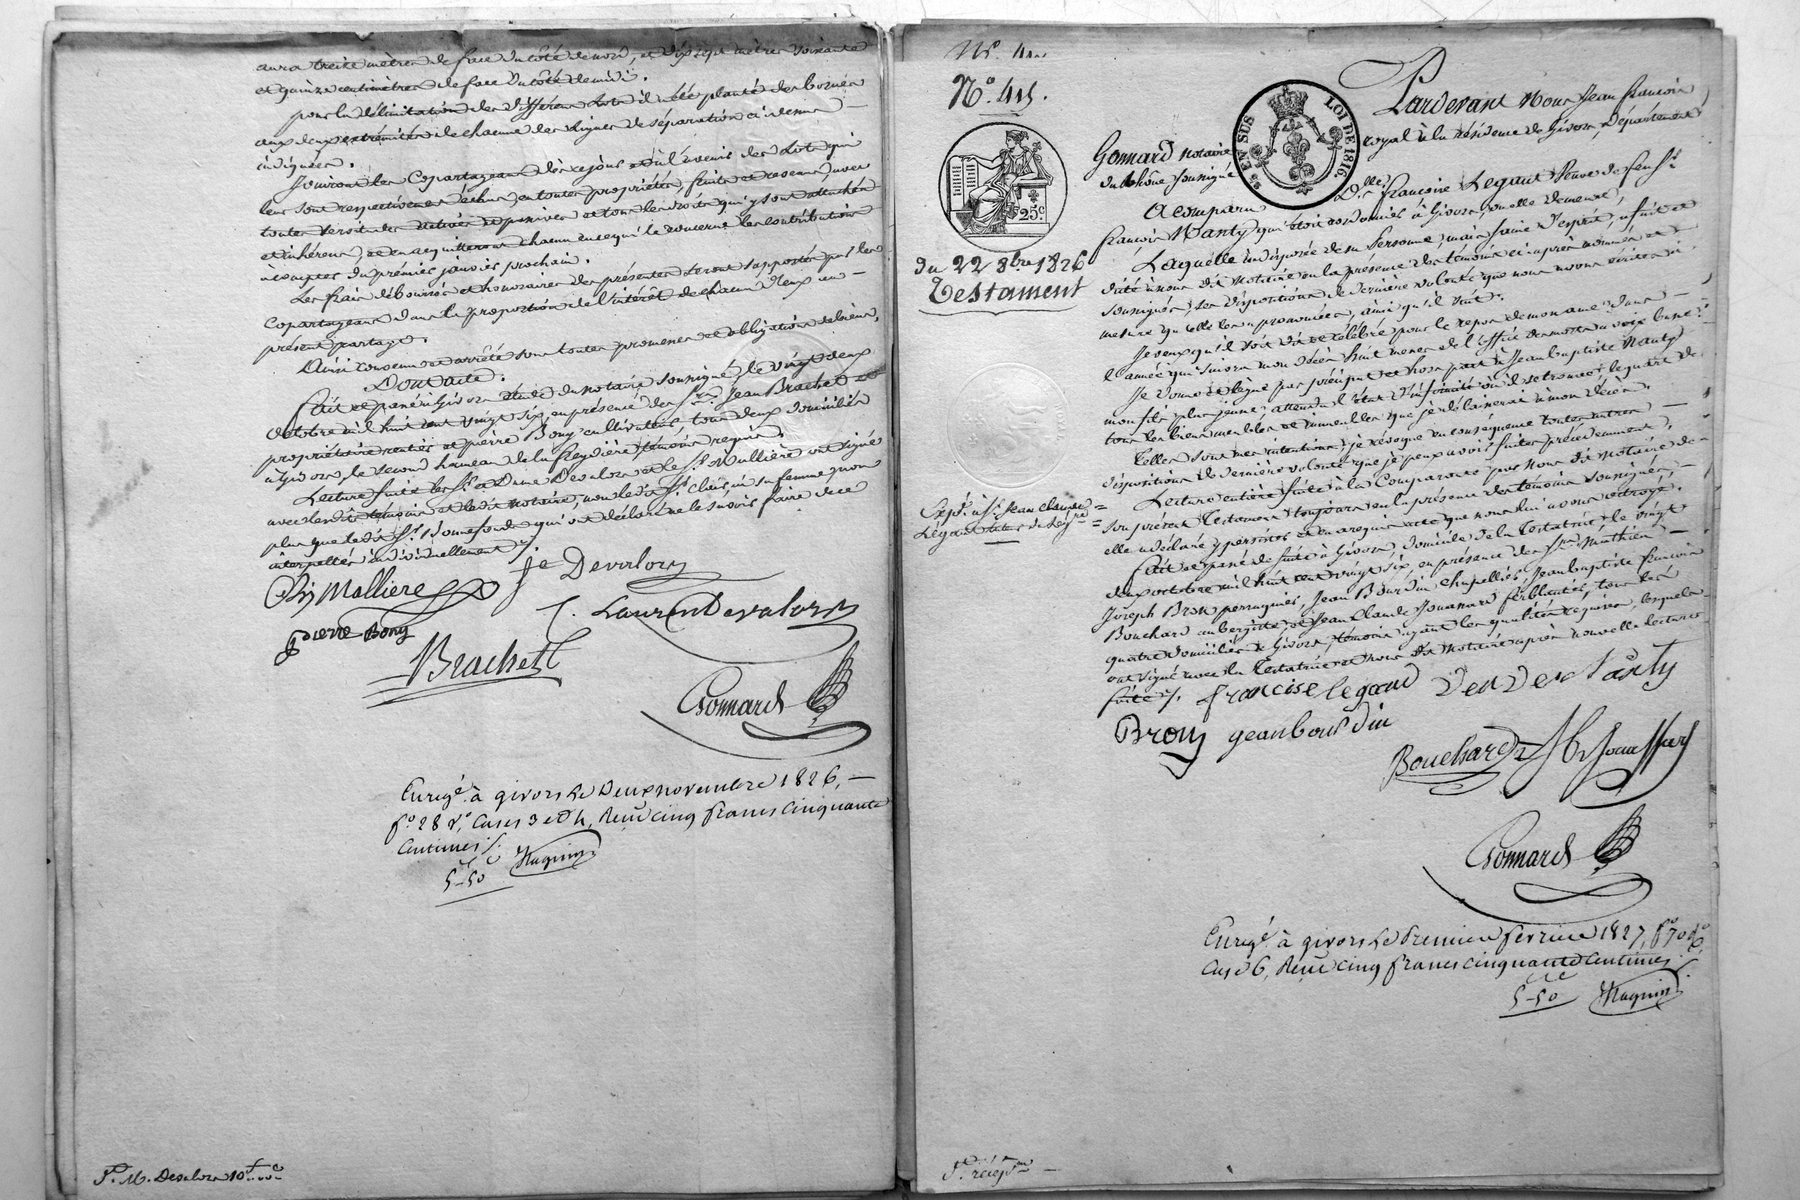 aura treize mètres de face du côté de nord, et dix sept mètres soixante
et quinze centimètres de face du côté de midi.
pour la délimitation des différens lots il a été planté des bornes
aux deux extrémités de chacune des lignes de séparation ci dessus
indiquées.
Jouiront les Copartageans dès ce jour des lots qui
leur sont respectivement échus, en toute propriété, fruits et revenus, avec
toutes servitudes actives et passives et tous les droits qui y sont attachés
et inhérens, et en acquitteront chacun en ce qui le concerne les contributions
à compter du premier janvier prochain.
Les frais déboursés et honoraires des présentes seront supportés par les
Copartageans dans la proportion de l'intérêt de chacun d'eux au
présent partage.
Ainsi convenu et arrêté sous toutes promesses et obligations de biens,
Dont acte.
Fait et passé à Givors étude du notaire soussigné, le vingt deux
octobre mil huit cent vingt six, en présence des Srs. Jean Brachet
propriétaire rentier et pierre Bony cultivateur, tous deux domiciliés
à Givors, le second hameau de la Freydière témoins requis.
Lecture faite les Sr. et Dame Devalors et le Sr. Mallière ont signé
avec lesdits témoins et ledit notaire, non ledit Sr. sa femme, non
plus que ledit Sr. Bonnefond qui ont déclaré ne le savoir faire de ce
interpellés individuellement.
Mallière je Devalors
pierre Bony Laurent Devalors
Brachet
Gonnard
Enregé. à givors le Deux novembre 1826,
fo. 28 vo. Cases 3 et 4, Reçu cinq francs Cinquante
Centimes
5-50 Magnin
P. M. Devalors 10
No. 411.
No. 415.
25c
EN SUS
LOI DE 1816.
Pardevant Nous Jean François
Gonnard notaire royal à la résidence de Givors, Département
du Rhône soussigné
A comparu Dlle. Françoise Legaut Veuve de feu Sr.
François Nanty qui étoit cordonnier à Givors, où elle demeure,
Laquelle indisposée de sa personne, mais saine d'esprit, a fait et
dicté à nous dit Notaire en la présence des témoins ci après nommés et
soussignés, ses dispositions de dernière volonté que nous avons écrites à
mesure qu'elle les a prononcées, ainsi qu'il suit.
du 22 8bre 1826
Testament
Je veux qu'il soit dit et célébré pour le repos de mon ame dans
l'année qui suivra mon décès huit messes de l'office des morts à voix basse.
Je donne et lègue par préciput et hors part à Jean Baptiste Nanty
mon fils plus jeune, attendu l'état d'infirmité où il se trouve, le quart de
tous les biens meubles et immeubles que je délaisserai à mon décès.
Telles sont mes intentions, je révoque en conséquence toutes autres
dispositions de dernière volonté que je peux avoir faites précédemment.
Lecture entière faite à la Comparante par nous dit notaire de
son présent testament toujours en la présence des témoins soussignés,
elle a déclaré y persister et en a requis acte que nous lui avons octroyé.
Expé. à Sr. Jean Claude
Fait et passé de suite à Givors, domicile de la testatrice le vingt
deux octobre mil huit cent vingt six, en présence des Srs. Mathieu
Joseph Bron perruquier, Jean Bourdin chapellier, Jean Baptiste François
Bouchard aubergiste et Jean Claude Jouanard, tous les
quatre domiciliés à Givors, témoins ayant les qualités requises, lesquels
ont signé avec la testatrice et nous dit notaire après nouvelle lecture
faite. francoise legaud veuve Nanty
Bron jean bourdin
Bouchard
Gonnard
Enregé. à givors le Premier fevrier 1827, fo. 70
Case 6, Reçu cinq francs cinquante Centimes
5-50 Magnin